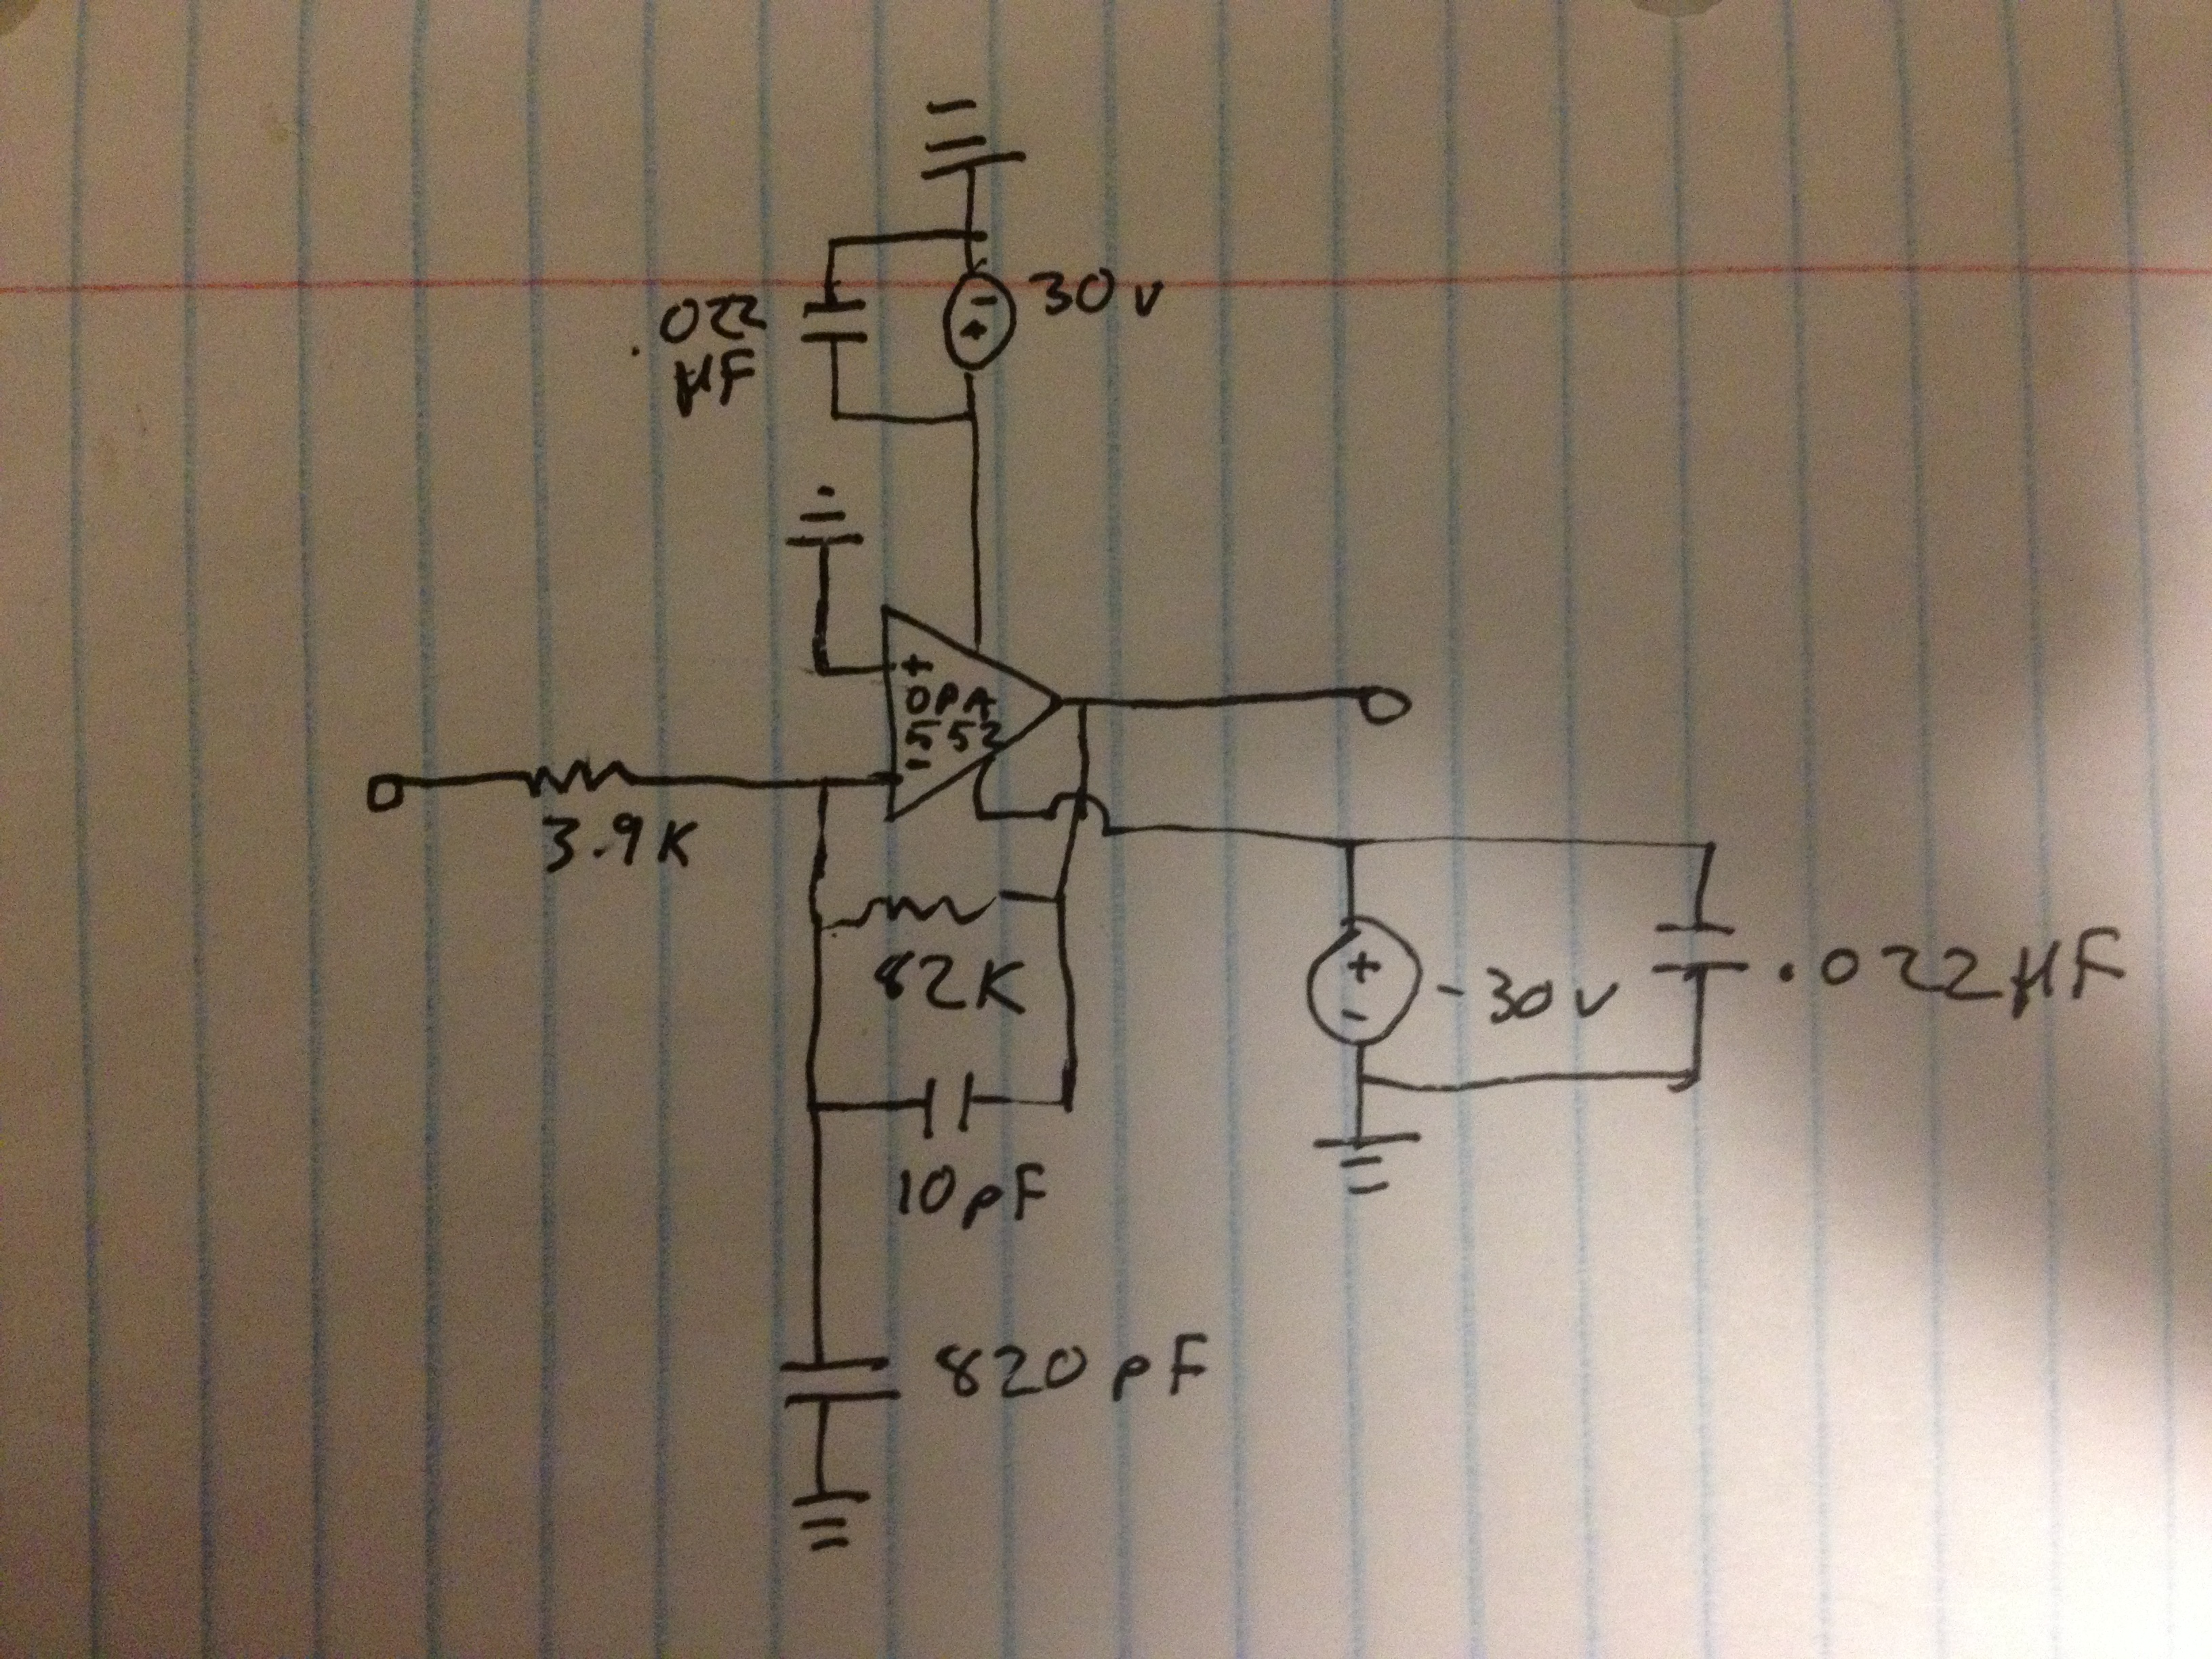 .022
µF
- +
30 V
+
OPA
552
-
3.9K
82K
10pF
820 pF
+
-
-30V
.022µF